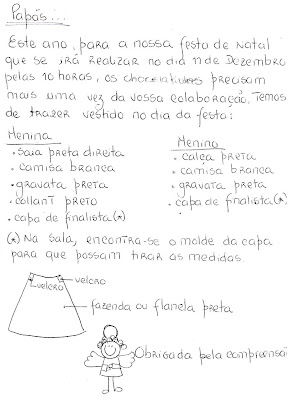 Papás...
Este ano, para a nossa festa de Natal
que se irá realizar no dia 11 de Dezembro
pelas 10 horas, os chocolatinhos precisam
mais uma vez da vossa colaboração. Temos
de trazer vestido no dia da festa:
Menina
• saia preta direita
• camisa branca
• gravata preta
• collant preto
• capa de finalista (*)
Menino
• calça preta
• camisa branca
• gravata preta
• capa de finalista (*)
(*) Na sala, encontra-se o molde da capa
para que possam tirar as medidas.
velcro
velcro
fazenda ou flanela preta
Obrigada pela compreensã